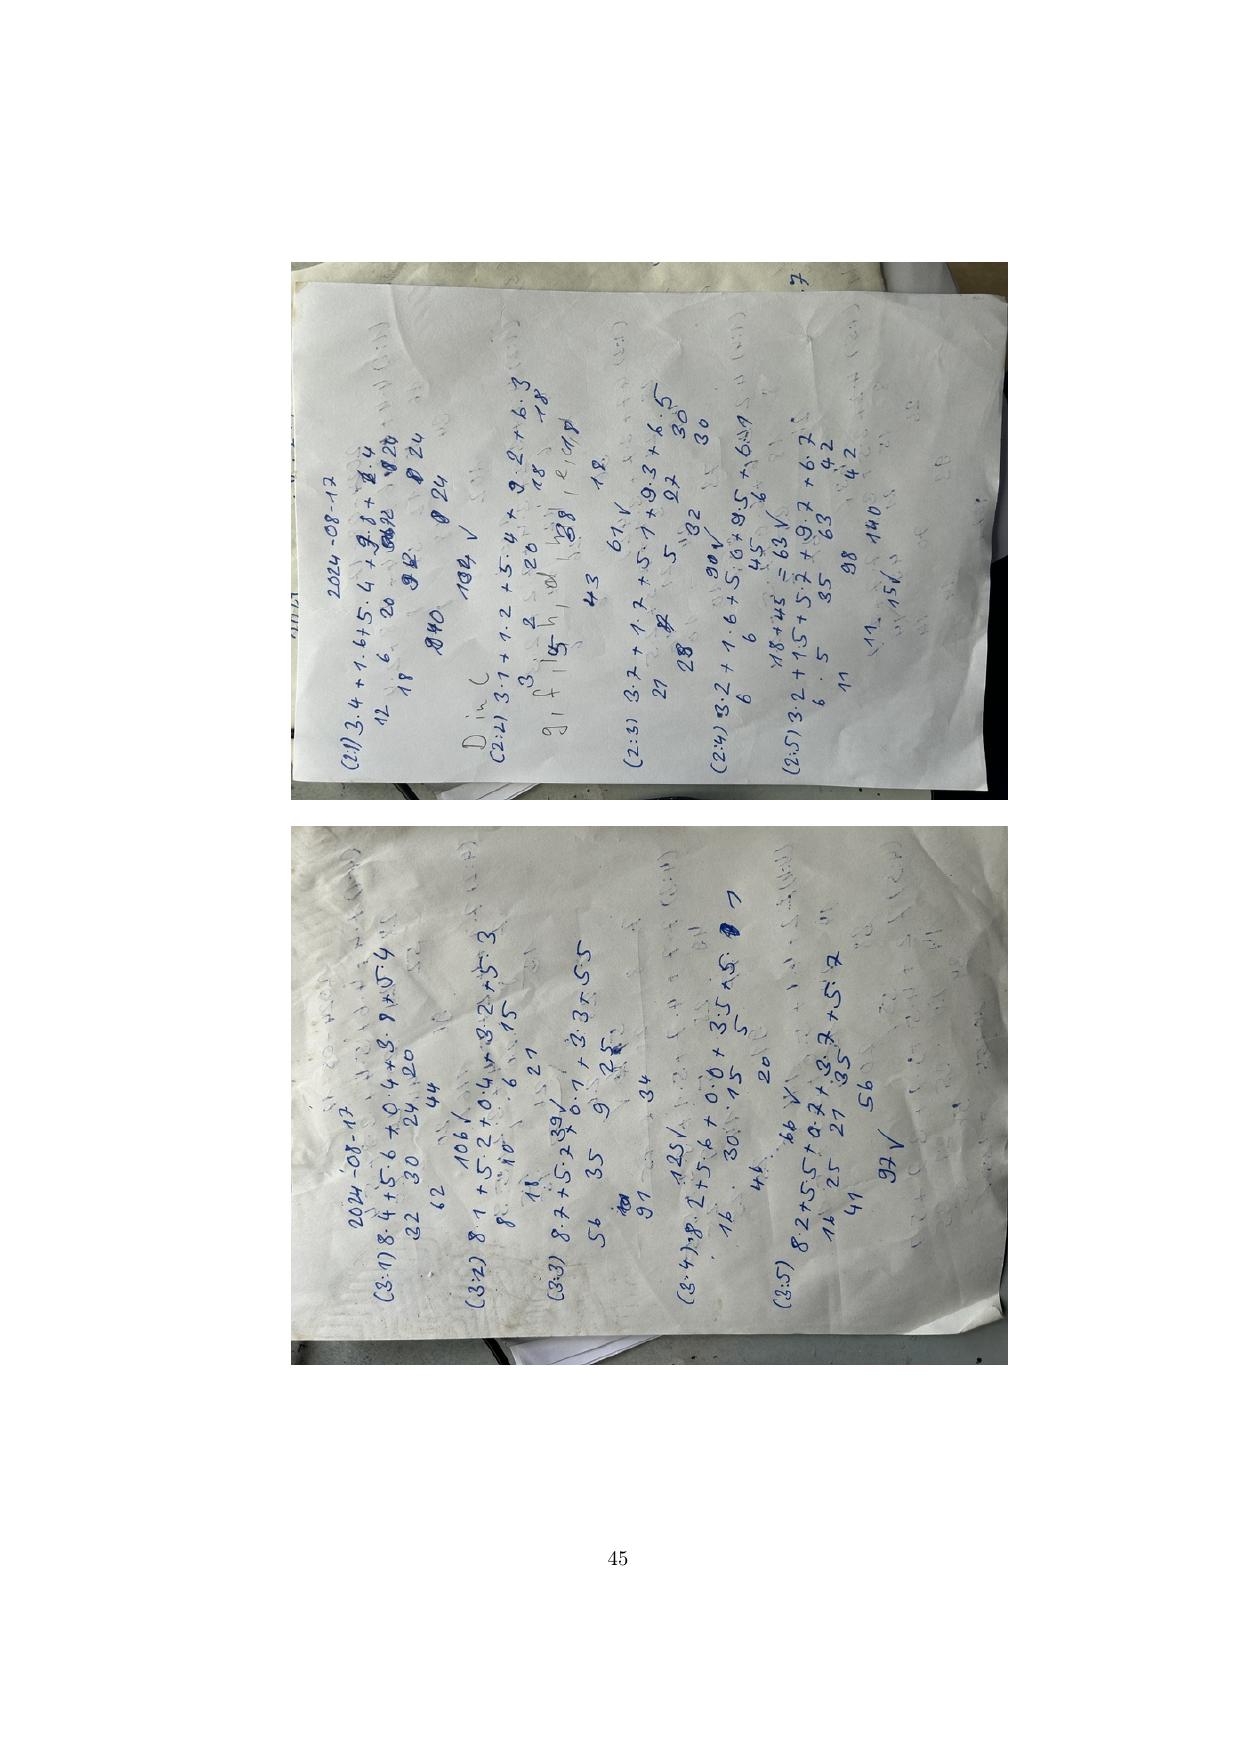 2024-08-17
(2:1) 3·4+1·6+5·4+9·8+6·4
12 6 20 72 24
18 92 24
24
134 ✓
D in C
(2:2) 3·1+1·2+5·4+9·2+6·3
3 2 20 18 18
5 38 18
43 18
61 ✓
(2:3) 3·7+1·7+5·1+9·3+6·5
21 7 5 27 30
28 32 30
90 ✓
(2:4) 3·2+1·6+5·0+9·5+6·1
6 6 45 6
18+45 = 63 ✓
(2:5) 3·2+1·5+5·7+9·7+6·7
6 5 35 63 42
11 98 42
11 140
151 ✓
2024-08-17
(3:1) 8·4+5·6+0·4+3·8+5·4
32 30 24 20
62 44
106 ✓
(3:2) 8·1+5·2+0·4+3·2+5·3
8 10 6 15
18 21
39 ✓
(3:3) 8·7+5·7+0·1+3·3+5·5
56 35 9 25
91 34
125 ✓
(3:4) 8·2+5·6+0·0+3·5+5·1
16 30 15 5
46 20
66 ✓
(3:5) 8·2+5·5+0·7+3·7+5·7
16 25 21 35
41 56
97 ✓
45